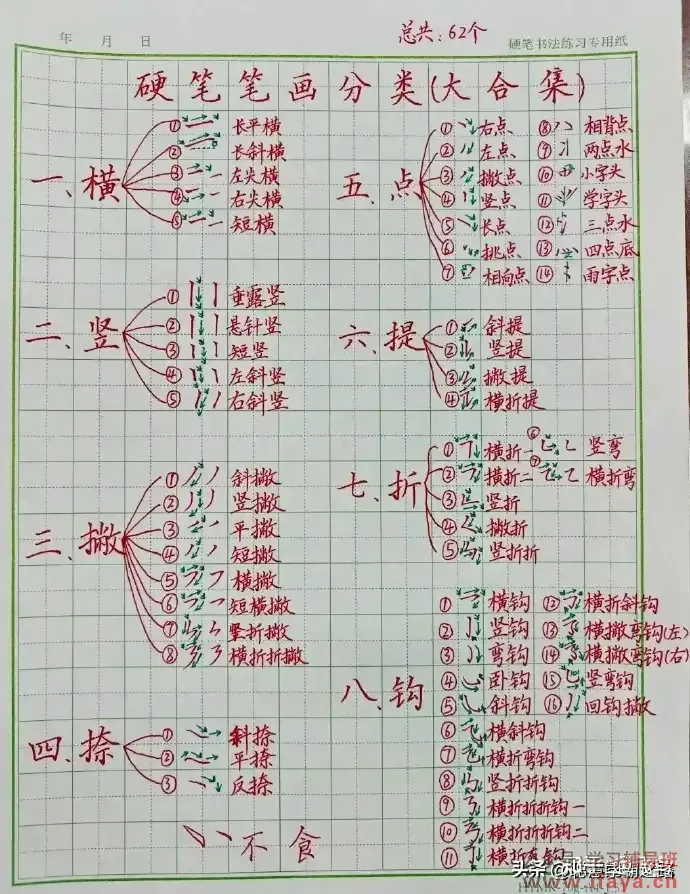 总共:62个
年 月 日
硬笔书法练习专用纸
硬笔笔画分类(大合集)
一、横
①长平横
②长斜横
③左尖横
④右尖横
⑤短横
二、竖
①垂露竖
②悬针竖
③短竖
④左斜竖
⑤右斜竖
三、撇
①斜撇
②竖撇
③平撇
④短撇
⑤横撇
⑥短横撇
⑦竖折撇
⑧横折折撇
四、捺
①斜捺
②平捺
③反捺
不食
五、点
①右点
②左点
③撇点
④竖点
⑤长点
⑥挑点
⑦相向点
⑧相背点
⑨两点水
⑩小字头
⑪学字头
⑫三点水
⑬四点底
⑭雨字点
六、提
①斜提
②竖提
③撇提
④横折提
七、折
①横折一
②横折二
③竖折
④撇折
⑤竖折折
⑥竖弯
⑦横折弯
八、钩
①横钩
②竖钩
③弯钩
④卧钩
⑤斜钩
⑥横斜钩
⑦横折弯钩
⑧竖折折钩
⑨横折折折钩一
⑩横折折折钩二
⑪横折直钩
⑫横折斜钩
⑬横撇弯钩(左)
⑭横撇弯钩(右)
⑮竖弯钩
⑯回钩撇
学习辅导班
www.jiaya.cn